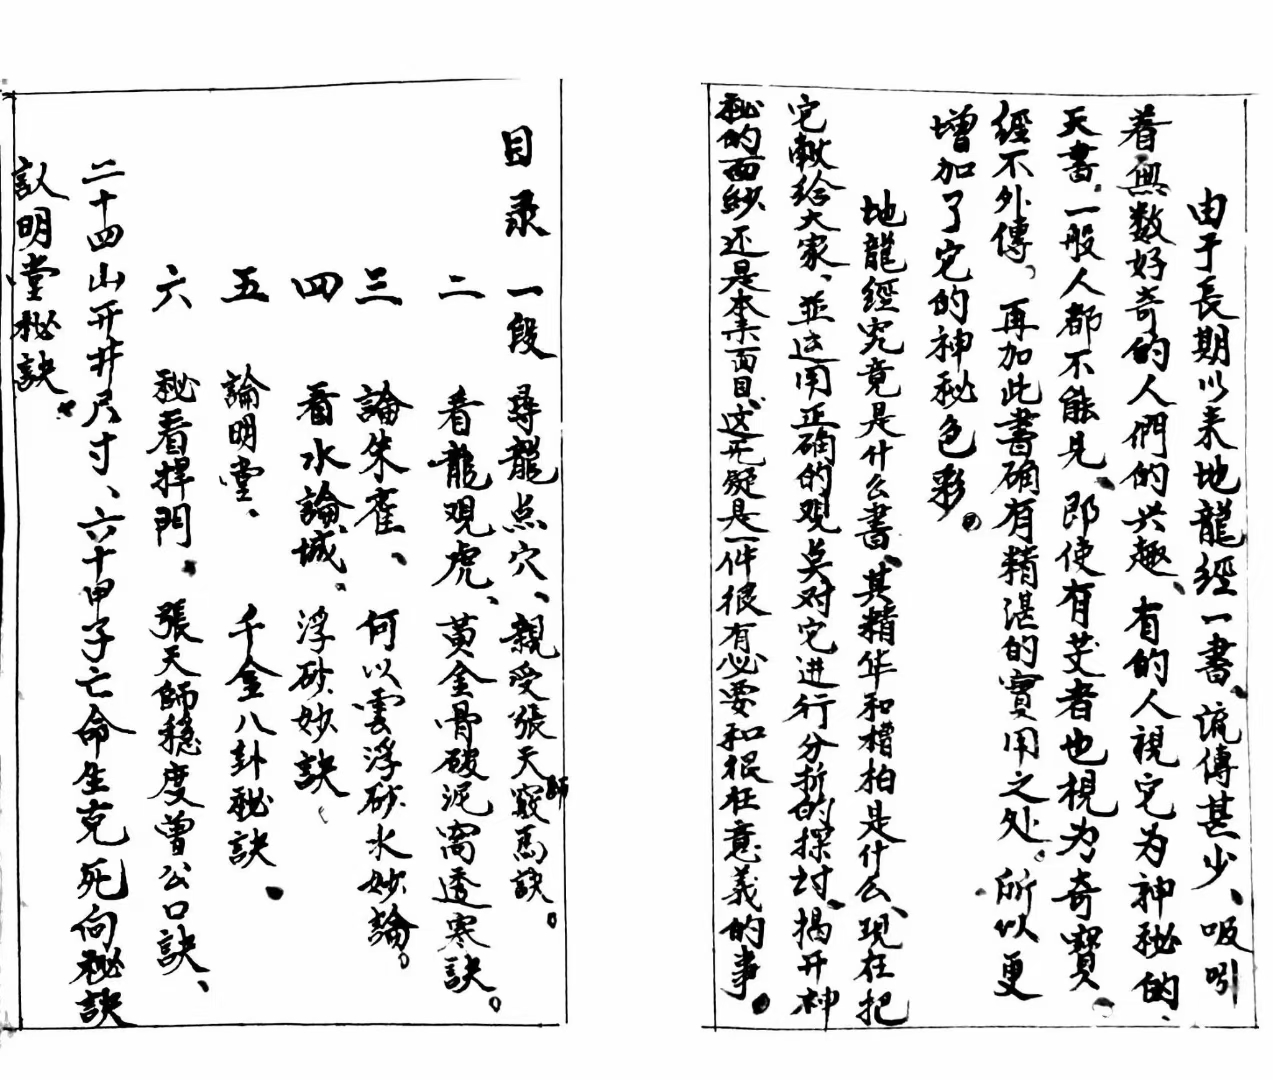 由于長期以来地龍經一書、流傳甚少、吸引
着無数好奇的人們的兴趣、有的人視它为神秘的、
天書、一般人都不能見、即使有艾者也視为奇寶。
經不外傳。再加此書确有精湛的實用之处。所以更
增加了它的神秘色彩。
地龍經究竟是什么書、其精华和糟拍是什么、现在把
它献给大家、並运用正确的观奌对它进行分折的探討、揭开神
秘的面纱、还是本来面目、这无疑是一件很有必要和很在意義的事。
目录
一段 尋龍点穴、親受張天師竅馬訣。
二 看龍观虎、黃金骨破泥窩透寒訣。
三 論朱雀、何以雲浮砂水妙論。
四 看水論城、浮砂妙訣
五 論明堂、千金八卦秘訣.
六 秘看捍門. 張天師穏度曾公口訣、
二十四山开井尺寸、六十甲子亡命生克死向秘訣
訤明堂秘訣。